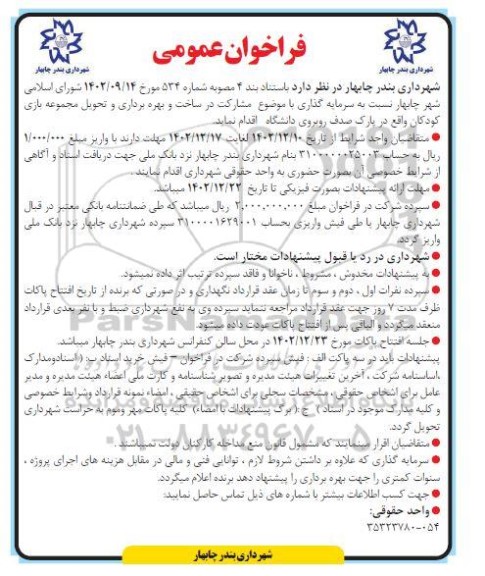 فراخوان عمومی
شهرداری بندر چابهار
شهرداری بندر چابهار
شهرداری بندر چابهار در نظر دارد باستناد بند ۴ مصوبه شماره ۵۳۴ مورخ ۱۴۰۲/۰۹/۱۴ شورای اسلامی
شهر چابهار نسبت به سرمایه گذاری با موضوع مشارکت در ساخت و بهره برداری و تحویل مجموعه بازی
کودکان واقع در پارک صدف روبروی دانشگاه اقدام نماید.
● متقاضیان واجد شرایط از تاریخ ۱۴۰۲/۱۲/۱۰ لغایت ۱۴۰۲/۱۲/۱۷ مهلت دارند با واریز مبلغ ۱/۰۰۰/۰۰۰
ریال به حساب ۳۱۰۰۰۰۰۰۲۵۰۰۳ بنام شهرداری بندر چابهار نزد بانک ملی جهت دریافت اسناد و آگاهی
از شرایط خصوصی آن بصورت حضوری به واحد حقوقی شهرداری اقدام نمایند.
● مهلت ارائه پیشنهادات بصورت فیزیکی تا تاریخ ۱۴۰۲/۱۲/۲۲ میباشد.
● سپرده شرکت در فراخوان مبلغ ۲,۰۰۰,۰۰۰,۰۰۰ ریال میباشد که طی ضمانتنامه بانکی معتبر در قبال
شهرداری چابهار یا طی فیش واریزی بحساب ۳۱۰۰۰۰۱۶۲۹۰۰۱ سپرده شهرداری چابهار نزد بانک ملی
واریز گردد.
● شهرداری در رد یا قبول پیشنهادات مختار است.
● به پیشنهادات مخدوش ، مشروط ، ناخوانا و فاقد سپرده ترتیب اثر داده نمیشود.
● سپرده نفرات اول ، دوم و سوم تا زمان عقد قرارداد نگهداری و در صورتی که برنده از تاریخ افتتاح پاکات
ظرف مدت ۷ روز جهت عقد قرارداد مراجعه ننماید سپرده وی به نفع شهرداری ضبط و با نفر بعدی قرارداد
منعقد میگردد و الباقی پس از افتتاح پاکات عودت داده میشود.
● جلسه افتتاح پاکات مورخ ۱۴۰۲/۱۲/۲۳ در محل سالن کنفرانس شهرداری بندر چابهار میباشد.
پیشنهادات باید در سه پاکت الف : فیش سپرده شرکت در فراخوان – فیش خرید اسناد ب: ( اسنادومدارک
،اساسنامه شرکت ، آخرین تغییرات هیئت مدیره و تصویر شناسنامه و کارت ملی اعضاء هیئت مدیره و مدیر
عامل برای اشخاص حقوقی ، مشخصات سجلی برای اشخاص حقیقی ، امضاء نمونه قرارداد وشرایط خصوصی
و کلیه مدارک موجود در اسناد ) ج : ( برگ پیشنهادات با امضاء) کلیه پاکات مهر وموم به حراست شهرداری
تحویل گردد.
● متقاضیان اقرار مینمایند که مشمول قانون منع مداخله کارکنان دولت نمیباشند .
● سرمایه گذاری که علاوه بر داشتن شروط لازم ، توانایی فنی و مالی در مقابل هزینه های اجرای پروژه ،
سنوات کمتری را جهت بهره برداری را پیشنهاد دهد برنده اعلام میگردد.
● جهت کسب اطلاعات بیشتر با شماره های ذیل تماس حاصل نمایید:
● واحد حقوقی:
۳۵۳۲۳۷۸۰-۰۵۴
شهرداری بندر چابهار
ParsNamadData
۰۲۱-۸۸۳۴۹۶۷۰-۵